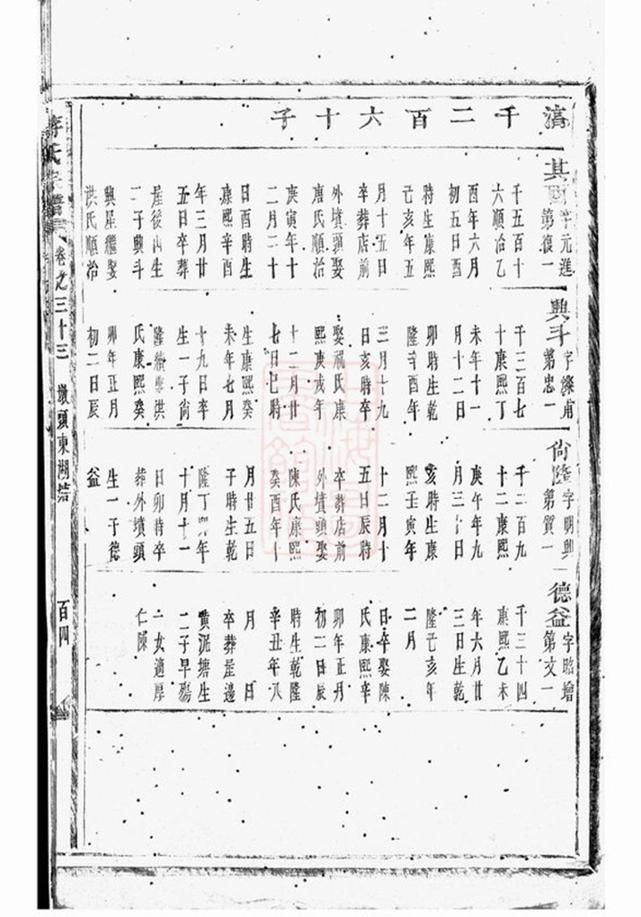 千二百六十子
其酉字元進
第復一
千五百十
六順治乙
酉年六月
初五日酉
時生康熙
乙亥年五
月十五日
卒葬店前
外墳頭娶
唐氏順治
庚寅年十
二月二十
日酉時生
康熙辛酉
年三月廿
五日卒葬
屋後山生
二子興斗
興星繼娶
洪氏順治
興斗字燦甫
第忠一
千三百七
十康熙丁
未年十一
月十二日
卯時生乾
隆辛酉年
三月十九
日亥時卒
娶氏康
熙庚戌年
十一月廿
七日巳時
生康熙癸
未年七月
十九日卒
生一子尚
隆續娶洪
氏康熙癸
卯年正月
初二日辰
尚隆字明興
第質一
千二百九
十二康熙
庚午年九
月三十日
亥時生康
熙壬寅年
十二月十
五日辰時
卒葬店前
外墳頭娶
陳氏康熙
癸酉年十
月廿五日
子時生乾
隆丁年
十月十一
日卯時卒
葬外墳頭
生一子德
益
德益字昭增
第文一
千三十四
康熙乙未
年六月廿
三日生乾
隆乙亥年
二月
日卒娶陳
氏康熙辛
卯年正月
初二日辰
時生乾隆
辛丑年八
月日
卒葬屋邊
黃泥塘生
二子早殤
一女適厚
仁陳
氏宗譜
卷之三十三
墩頭東湖
百四